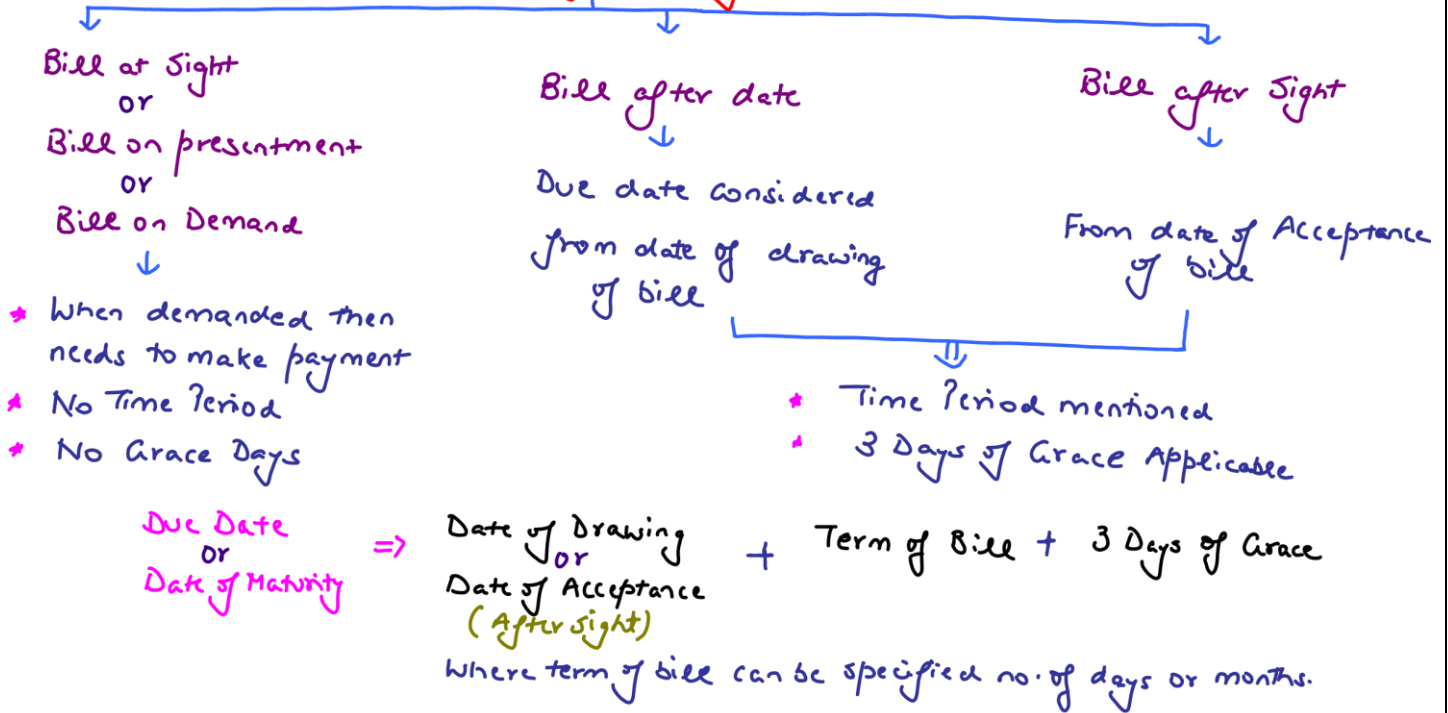 Bill at Sight
or
Bill on presentment
or
Bill on Demand
* When demanded then
needs to make payment
* No Time Period
* No Grace Days
Bill after date
Due date considered
from date of drawing
of bill
Bill after Sight
From date of Acceptance
of bill
* Time Period mentioned
* 3 Days of Grace Applicable
Due Date
or
Date of Maturity
=>
Date of Drawing
or
Date of Acceptance
(After sight)
+ Term of Bill + 3 Days of Grace
Where term of bill can be specified no. of days or months.